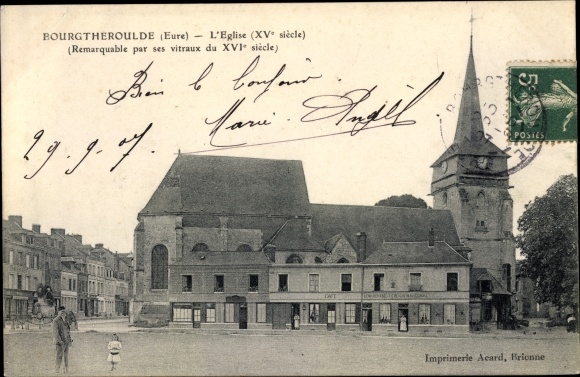 BOURGTHEROULDE (Eure) — L'Eglise (XVe siècle)
(Remarquable par ses vitraux du XVIe siècle)
Bien le bonjour
Marie Angèle
29.9.07
5c
POSTES
CAFÉ
Imprimerie Acard, Brionne